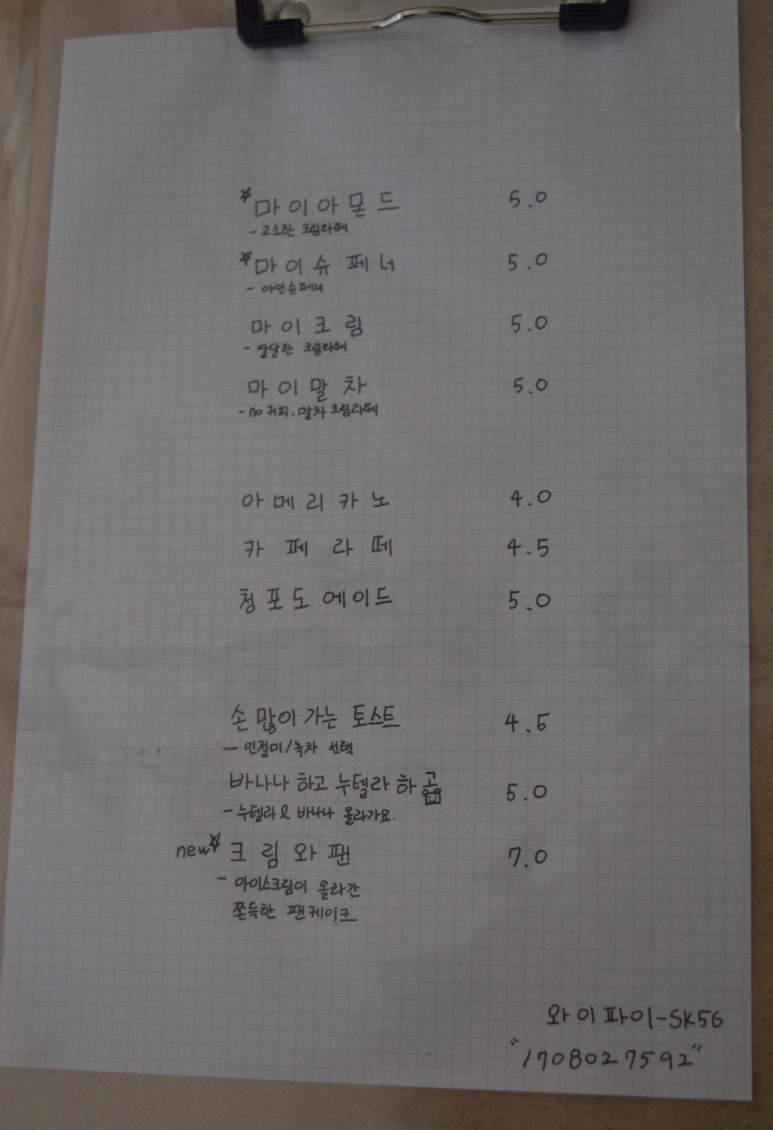 ☆마이아몬드 5.0
- 고소한 크림라떼
☆마이슈페너 5.0
- 아인슈페너
마이크림 5.0
- 달달한 크림라떼
마이말차 5.0
- no 커피, 말차 크림라떼
아메리카노 4.0
카페라떼 4.5
청포도에이드 5.0
손 많이 가는 토스트 4.5
- 인절미/녹차 선택
바나나 하고 누텔라 하고 5.0
- 누텔라 & 바나나 올라가요.
new☆ 크림와팬 7.0
- 아이스크림이 올라간
쫀득한 팬케이크
와이파이-SK5G
"1708027592"